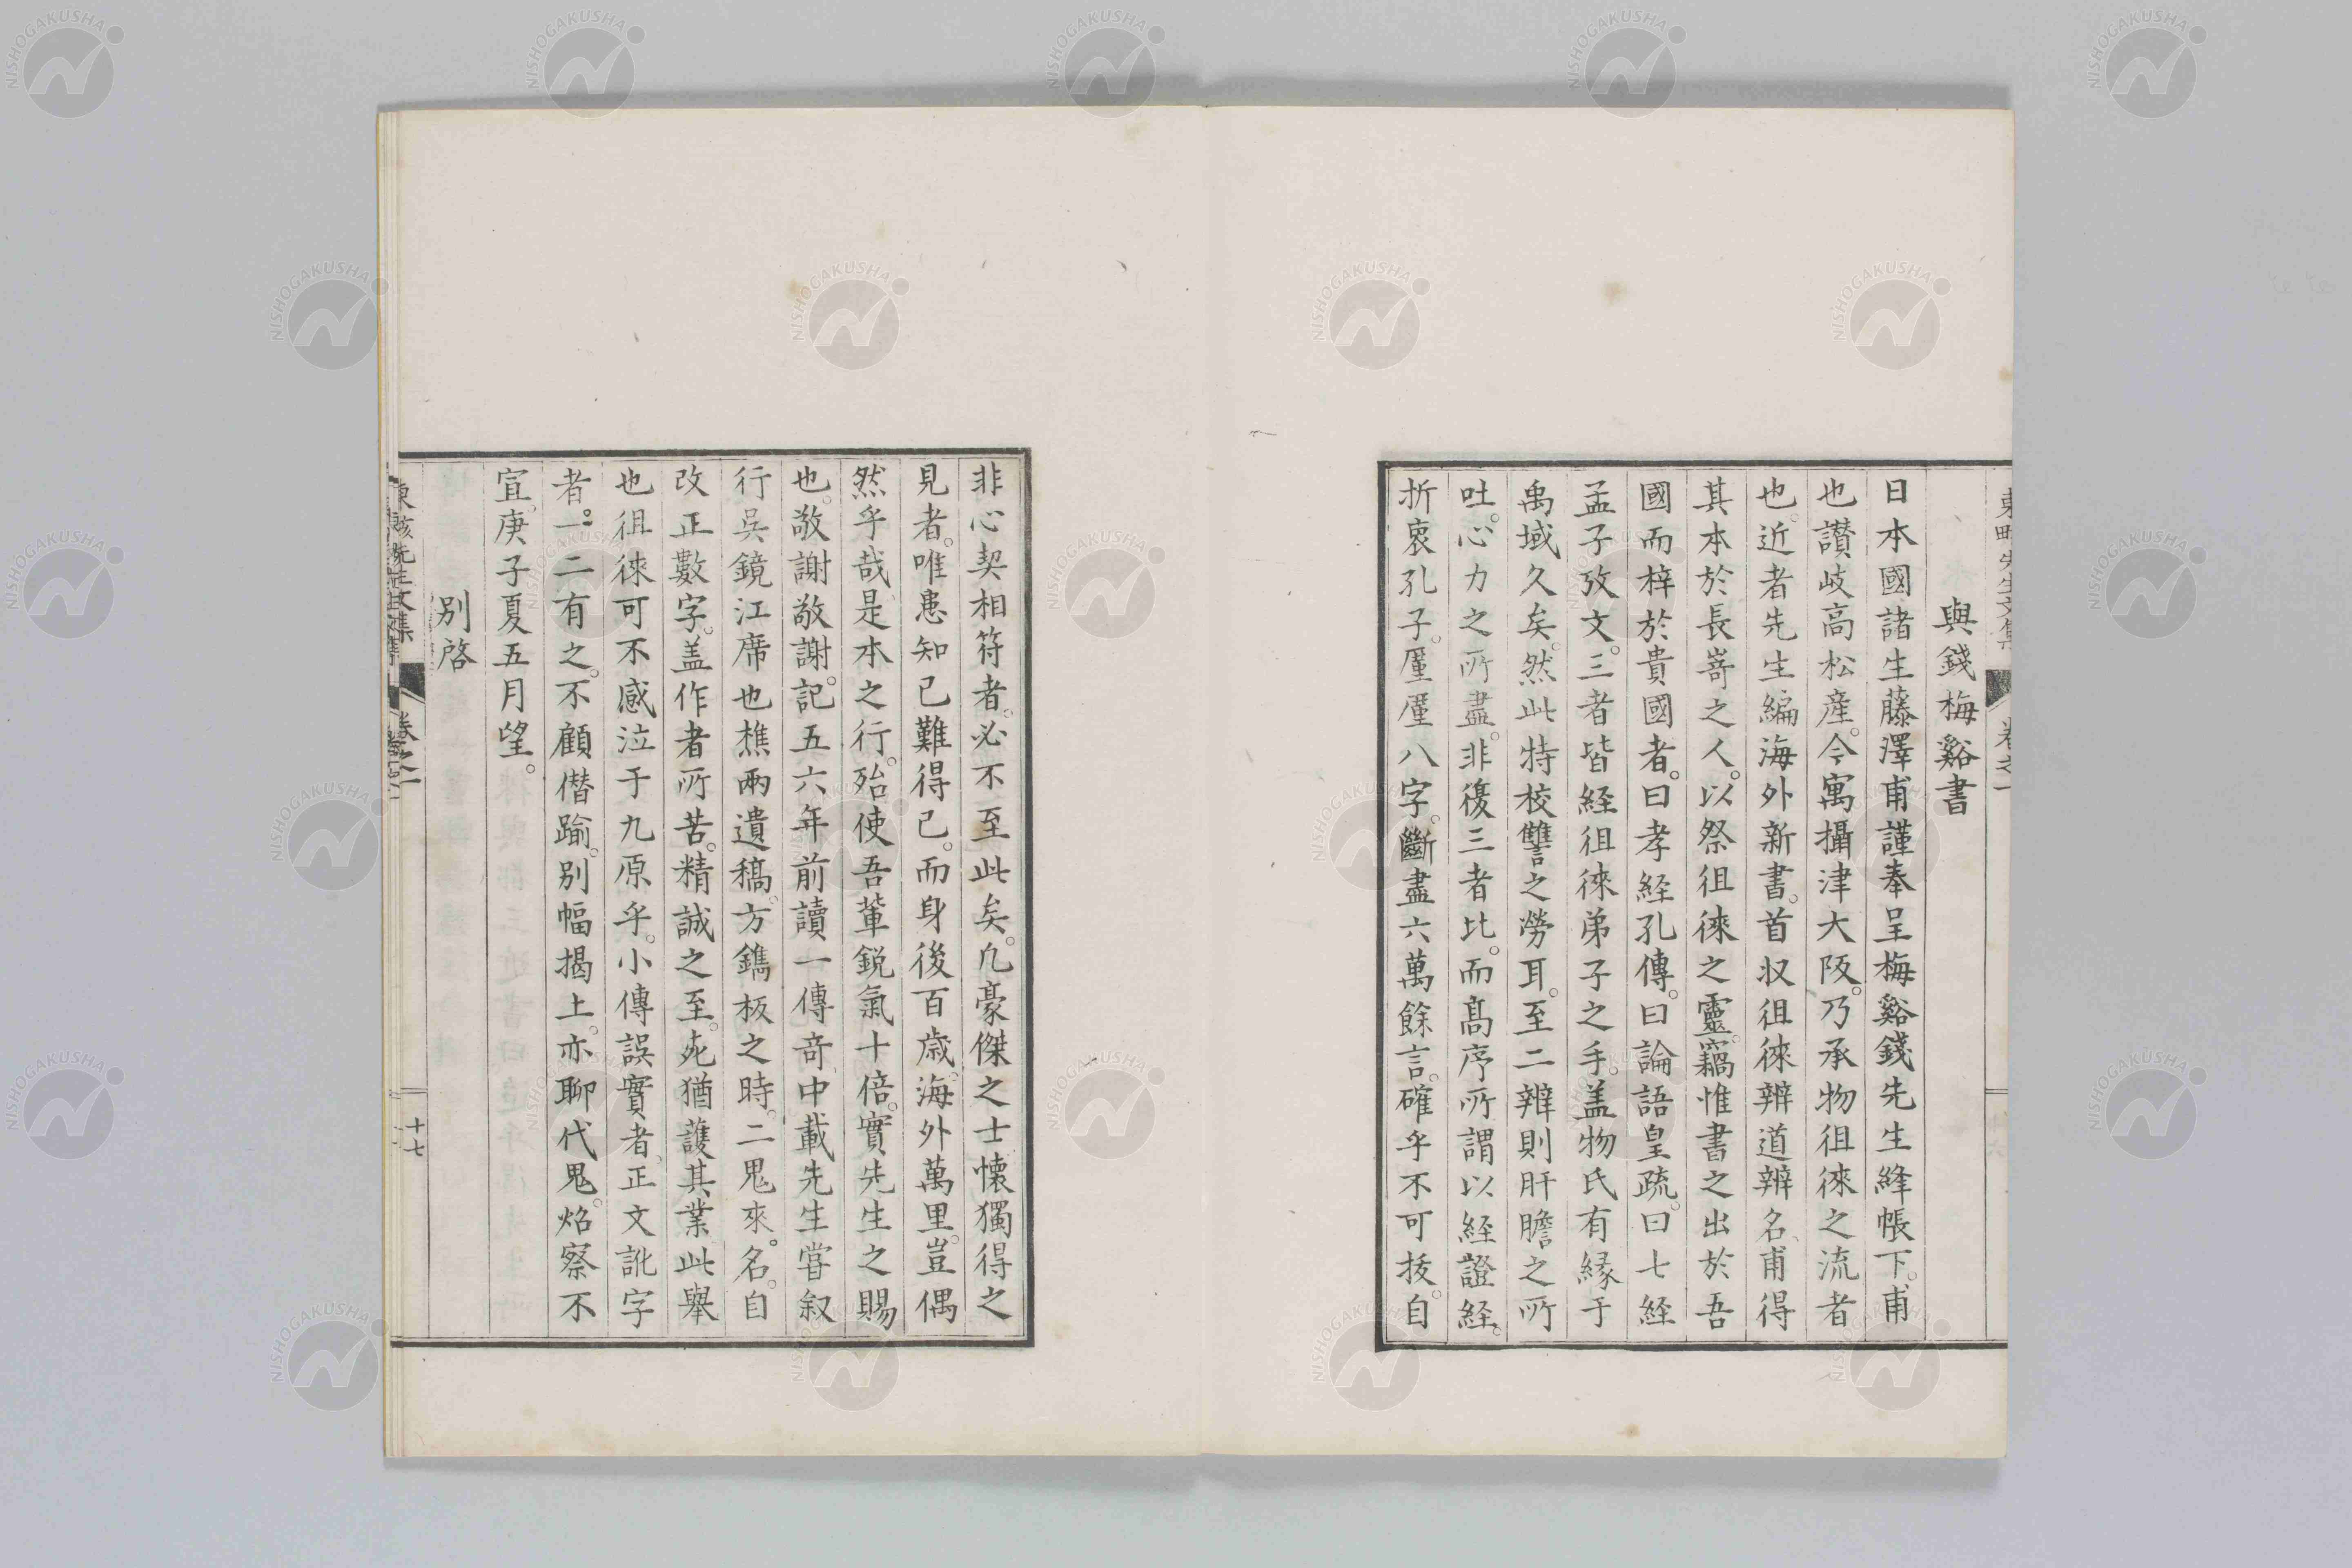 與錢梅谿書
日本國諸生藤澤甫謹奉呈梅谿錢先生絳帳下。甫
也讃岐高松産。今寓攝津大阪。乃承物徂徠之流者
也。近者先生編海外新書。首収徂徠辨道辨名、甫得
其本於長嵜之人。以祭徂徠之靈。竊惟書之出於吾
國而梓於貴國者。曰孝経孔傳。曰論語皇疏。曰七経
孟子攷文。三者皆経徂徠弟子之手。盖物氏有縁于
禹域久矣。然此特校讐之勞耳。至二辨則肝膽之所
吐。心力之所盡。非復三者比。而髙序所謂以経證経。
折衷孔子。厪厪八字。斷盡六萬餘言。確乎不可拔。自
非心契相符者。必不至此矣。凡豪傑之士懐獨得之
見者。唯患知己難得已。而身後百歳。海外萬里。豈偶
然乎哉。是本之行。殆使吾輩鋭氣十倍。實先生之賜
也。敬謝敬謝。記五六年前讀一傳奇、中載先生嘗叙
行吳鏡江席也樵兩遺稿。方鐫板之時。二鬼來。名。自
改正數字。盖作者所苦。精誠之至。死猶護其業此舉
也徂徠可不感泣于九原乎。小傳誤實者、正文訛字
者。一二有之。不顧僭踰。別幅揭上。亦聊代鬼。炤察不
宣。庚子夏五月望。
別啓
東畡先生文集
卷之一
十七